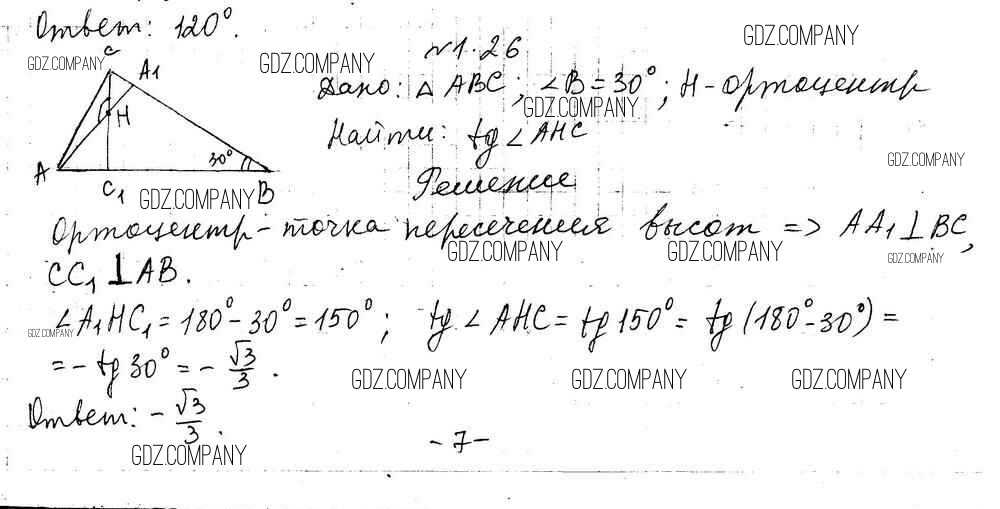 Ответ: 120°.
GDZ.COMPANY GDZ.COMPANY GDZ.COMPANY
№1.26
C A1 H A C1 B 30°
Дано: △ ABC; ∠B = 30°; H - ортоцентр
GDZ.COMPANY
Найти: tg ∠AHC
GDZ.COMPANY
Решение
GDZ.COMPANY
Ортоцентр - точка пересечения высот => AA1 ⊥ BC,
GDZ.COMPANY GDZ.COMPANY GDZ.COMPANY
CC1 ⊥ AB.
∠A1HC1 = 180° - 30° = 150°; tg ∠AHC = tg 150° = tg (180° - 30°) =
GDZ.COMPANY
= - tg 30° = - √3/3.
GDZ.COMPANY GDZ.COMPANY GDZ.COMPANY
Ответ: - √3/3.
GDZ.COMPANY
- 7 -